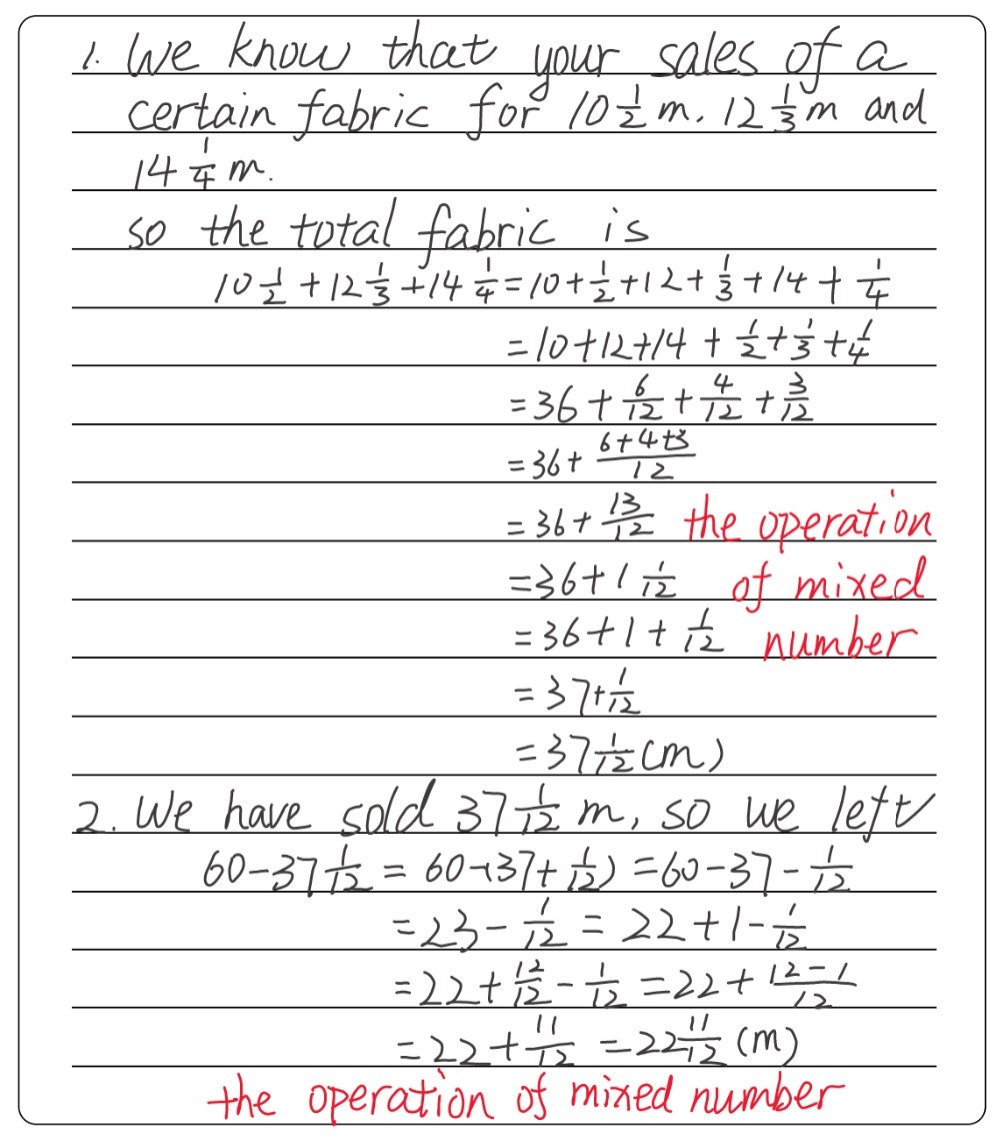 1. We know that your sales of a
certain fabric for 10 1/2 m. 12 1/3 m and
14 1/4 m.
so the total fabric is
10 1/2 + 12 1/3 + 14 1/4 = 10 + 1/2 + 12 + 1/3 + 14 + 1/4
= 10 + 12 + 14 + 1/2 + 1/3 + 1/4
= 36 + 6/12 + 4/12 + 3/12
= 36 + (6+4+3)/12
= 36 + 13/12 the operation
= 36 + 1 1/12 of mixed
= 36 + 1 + 1/12 number
= 37 + 1/12
= 37 1/12 (m)
2. We have sold 37 1/12 m, so we left
60 - 37 1/12 = 60 - (37 + 1/12) = 60 - 37 - 1/12
= 23 - 1/12 = 22 + 1 - 1/12
= 22 + 12/12 - 1/12 = 22 + (12-1)/12
= 22 + 11/12 = 22 11/12 (m)
the operation of mixed number